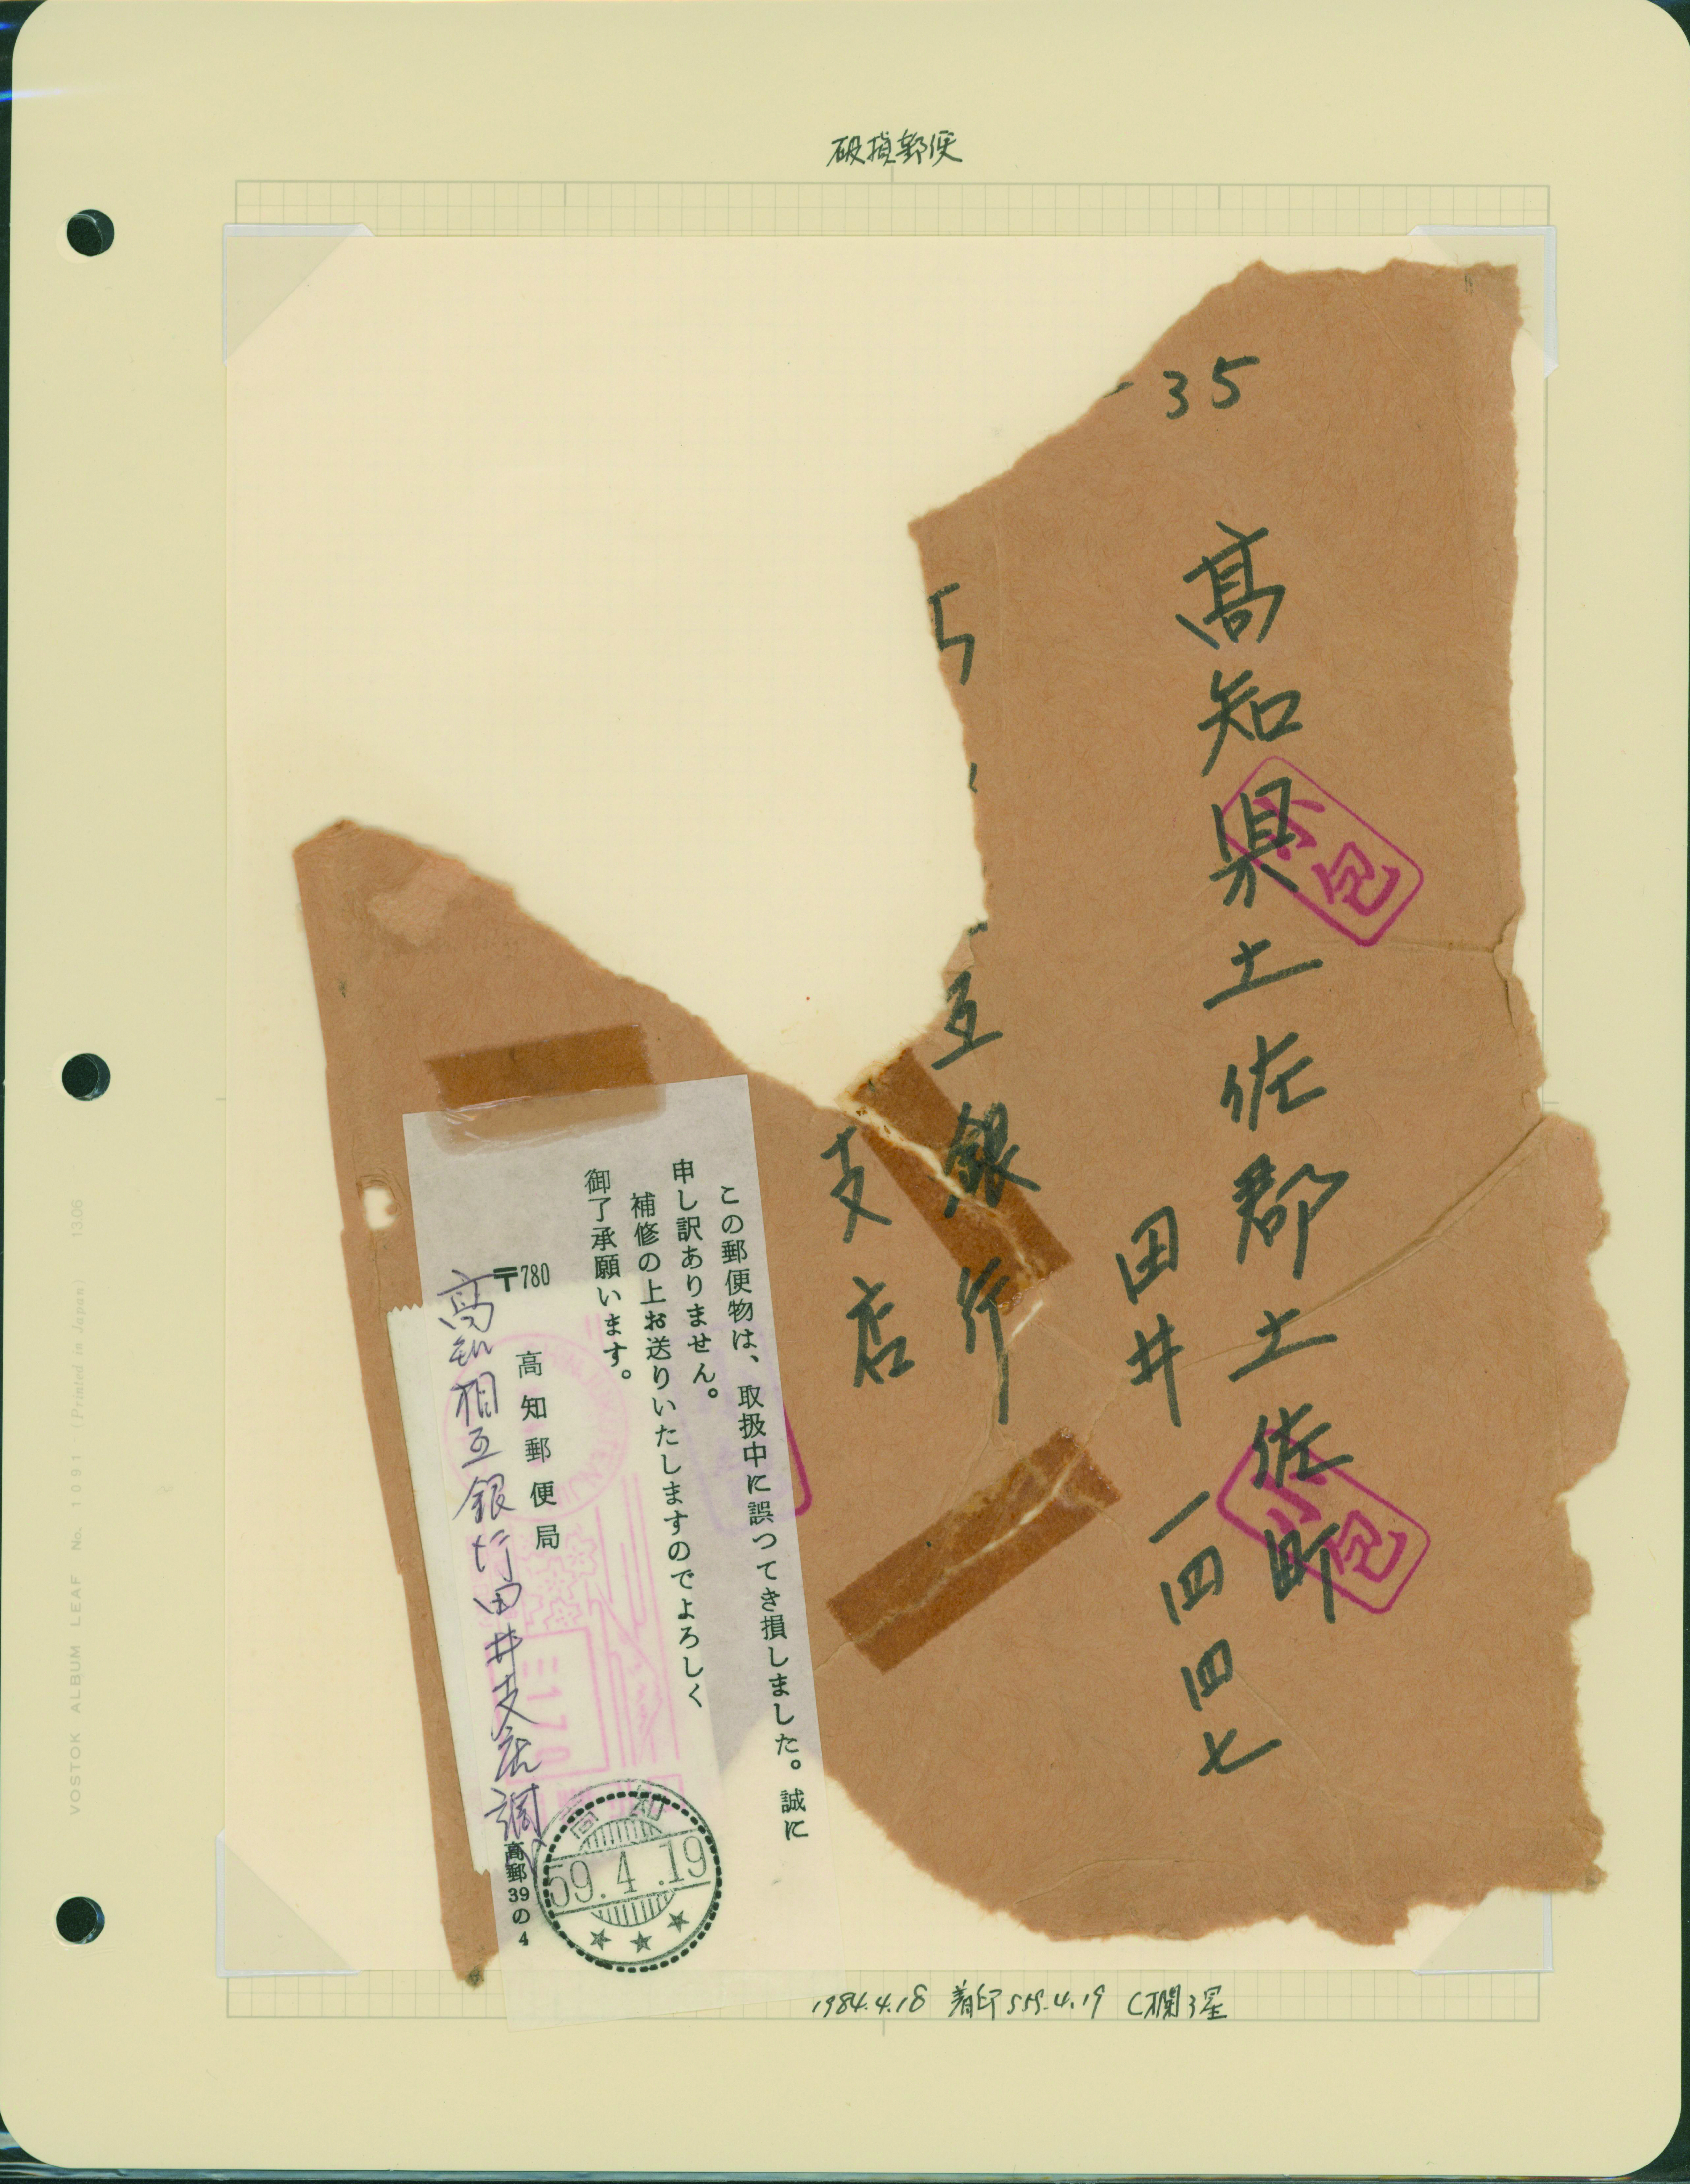 破損郵便
35
高知県土佐郡土佐町
田井一四四七
互銀行
支店
小包
小包
この郵便物は、取扱中に誤つてき損しました。誠に
申し訳ありません。
補修の上お送りいたしますのでよろしく
御了承願います。
〒780
高知郵便局
高知相互銀行田井支店調
高郵39の4
高知
59.4.19
1984.4.18 着印S59.4.19 C欄3星
VOSTOK ALBUM LEAF No. 1091 (Printed in Japan) 13.06